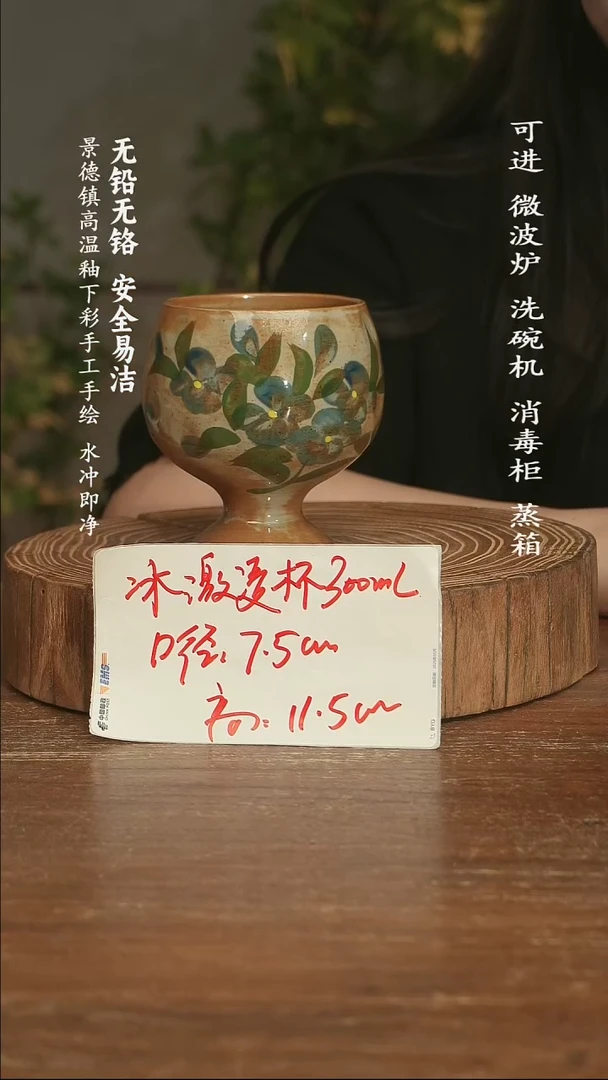 可进 微波炉 洗碗机 消毒柜 蒸箱
无铅无铬 安全易洁
景德镇高温釉下彩手工手绘 水冲即净
冰激凌杯300mL
口径:7.5cm
高:11.5cm
EMS
中国邮政
CHINA POST